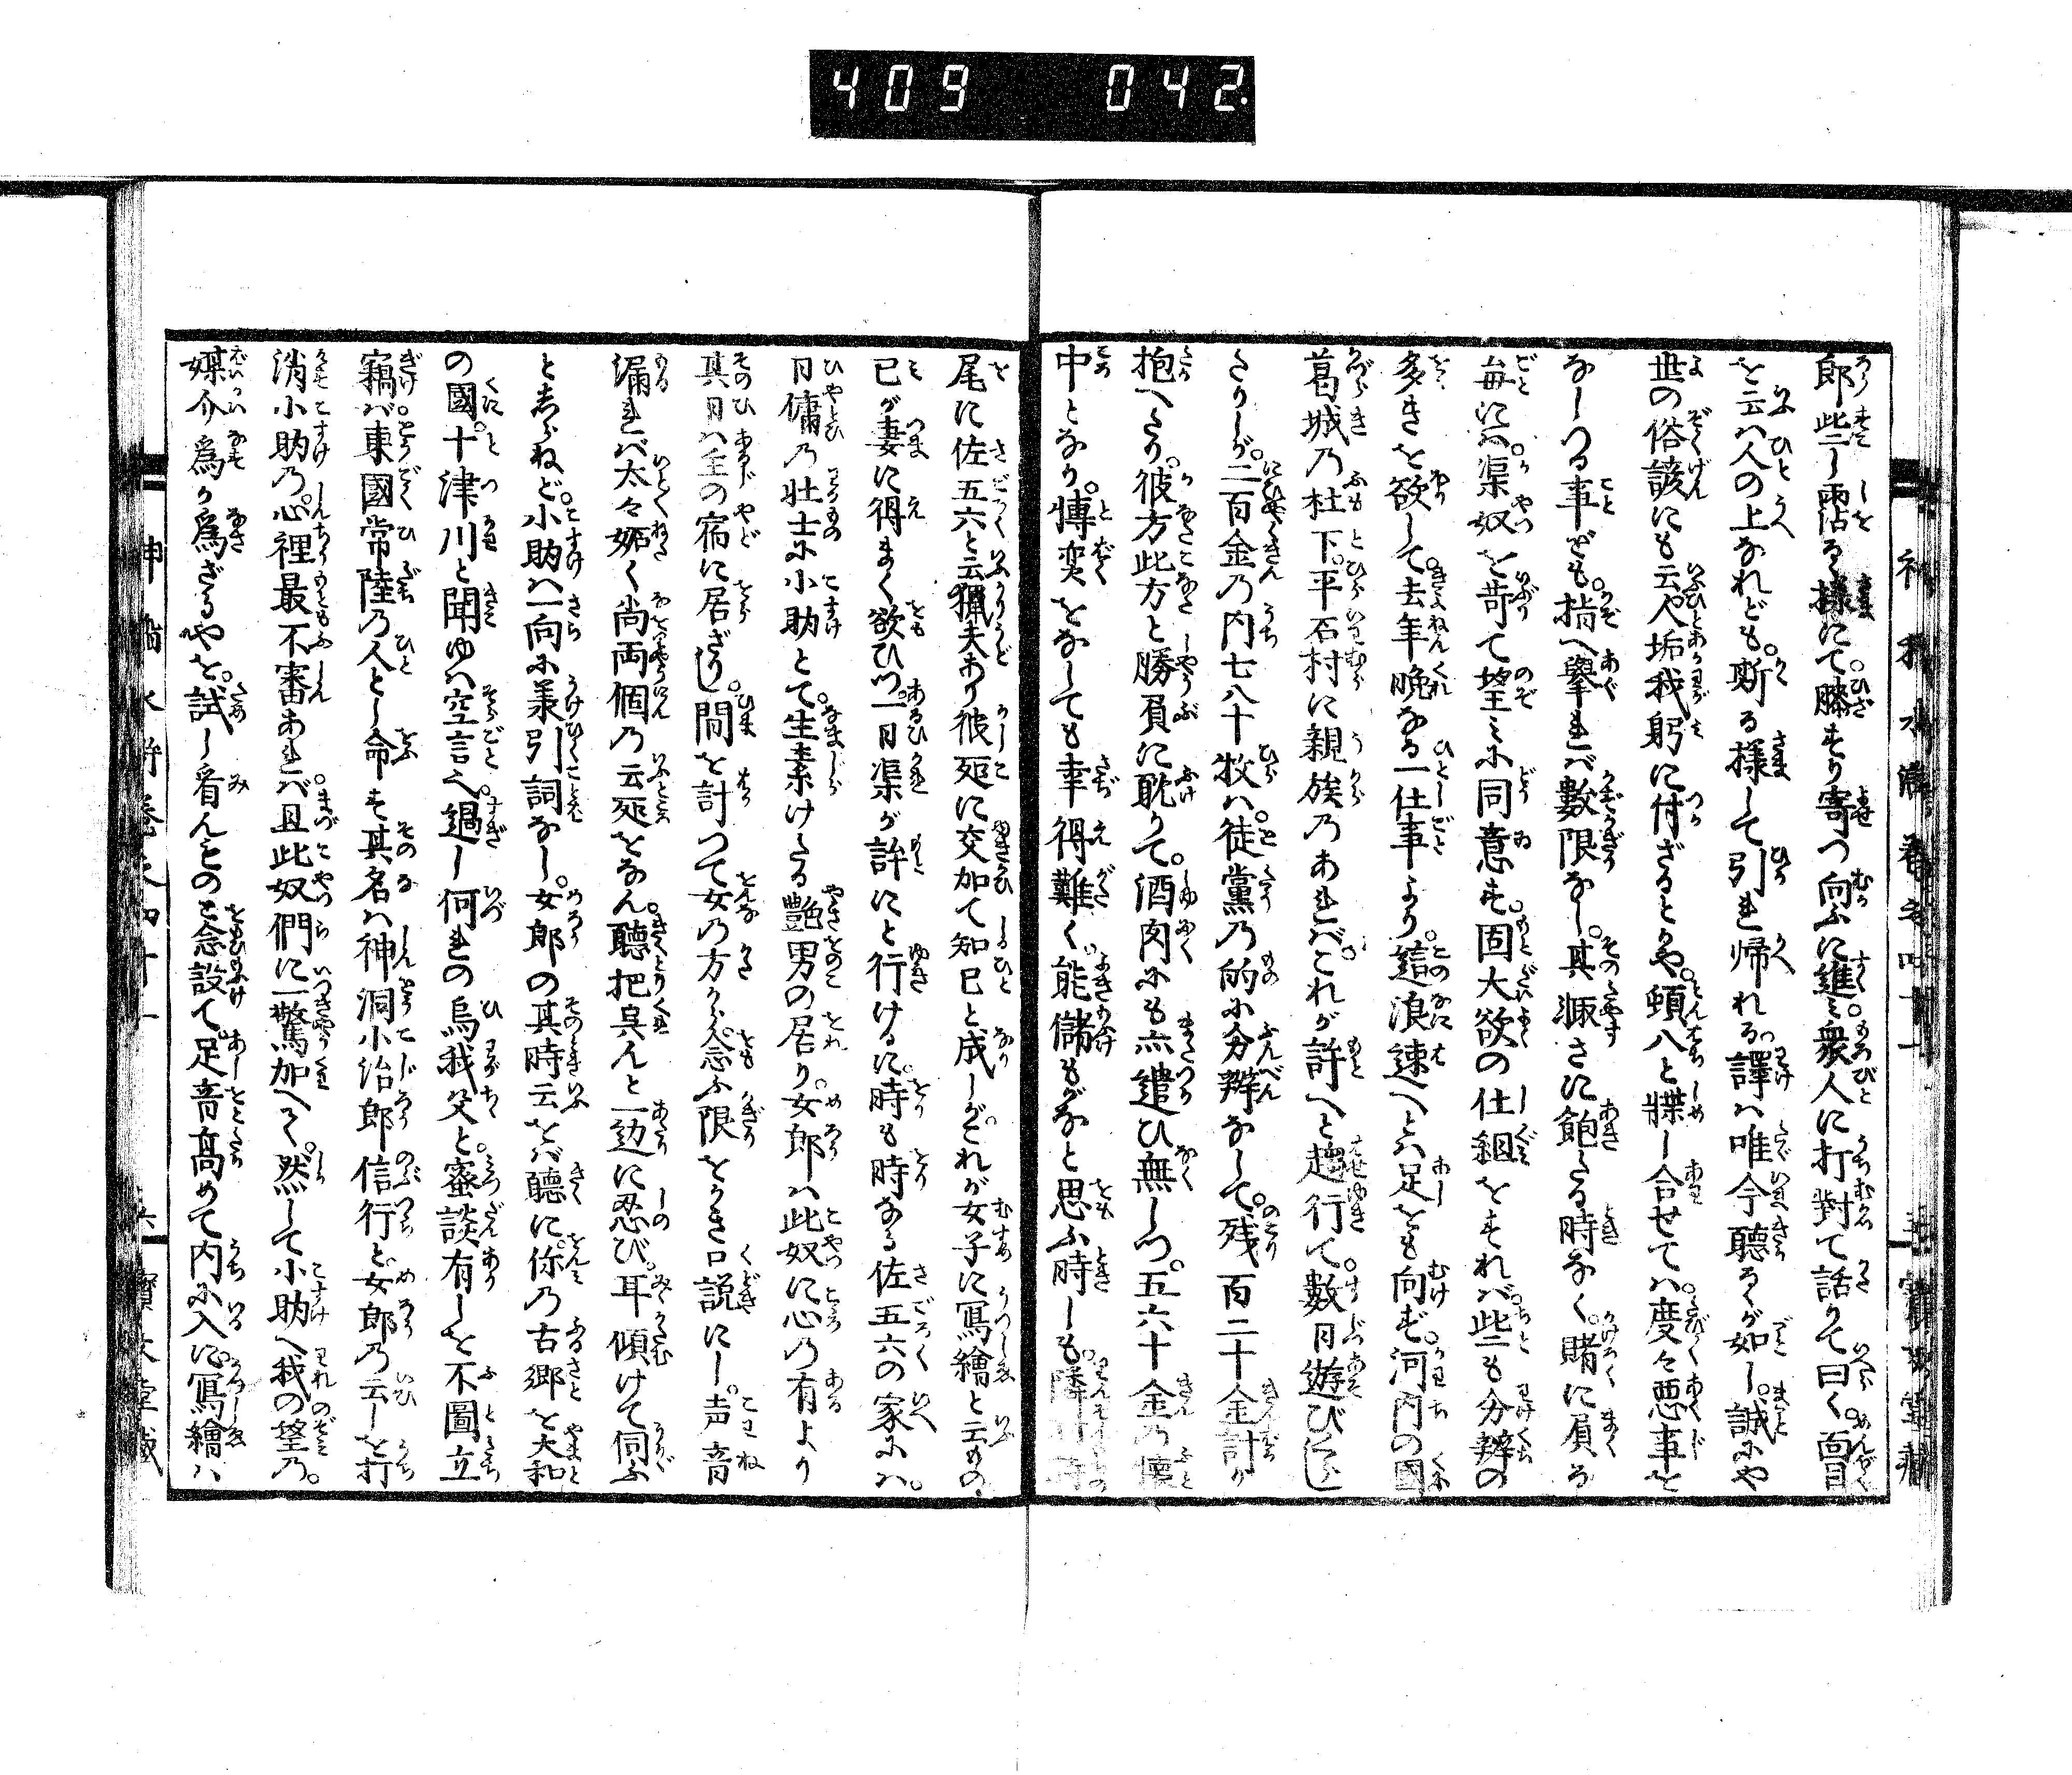 409 042.
郎些ーし霑る様にて。膝をすり寄つ向ふに進み。衆人に打對て話りて曰く。面目
を云ハ人の上なれども。斯る様して引れ帰れる。譯ハ唯今聽るが如し。誠にや
世の俗諺にも云。人垢我躬に付ざるとかや。頓八と牒し合せてハ。度々悪事を
なしつる事ども。指へ擧れバ數限なし。其
さに飽たる時なく。賭に負る
毎にハ。渠奴を苛て望みに同意す。固大欲の仕組をすれバ。些も分辨の
多きを欲して。去年晩なる一仕事より。這浪速へとハ足をも向ず。河内の國
葛城乃杜下。平石村に親族乃あれバ。これが許へと趨行て。數月遊び
さりしが。二百金乃内七八十枚ハ。徒黨乃的に分辨なして。残百二十金計り
抱へたり。彼方此方と勝負に耽りて。酒肉にも亦遣ひ無しつ。五六十金乃懐
中となり。博奕をなしても幸得難く。能儲もがなと思ふ時しも。隣
尾に佐五六と云獵夫あり彼処に交加て知己と成しが。これが女子に冩繪と云もの。
己が妻に得まく欲ひつ。一日渠が許にと行けるに。時も時なる佐五六の家にハ。
日傭乃壮士に小助とて。生素けたる艶男の居り。女郎ハ此奴に心乃有より
其日ハ主の宿に居ざりし。間を計つて女乃方から。念ふ限をかき口説にし。声音
漏れバ太々妬く尚両個乃云処をなん。聽把呉んと一边に忍び。耳傾けて伺ふ
としらねど。小助ハ一向に羕引詞なし。女郎の其時云をバ聽に。你乃古郷を大和
の國。十津川と聞ゆハ空言へ。過し何れの烏我父と。蜜談有しを不圖立
竊げバ。東國常陸乃人とし命す其名ハ神洞小治郎信行と。女郎乃云しを打
消小助乃。心裡最不審あれバ。且此奴們に一驚加へく。然して小助へ我の望乃。
媒介為か為ざるやを。試し看んとの念設て。足音髙めて内に入に。冩繪ハ